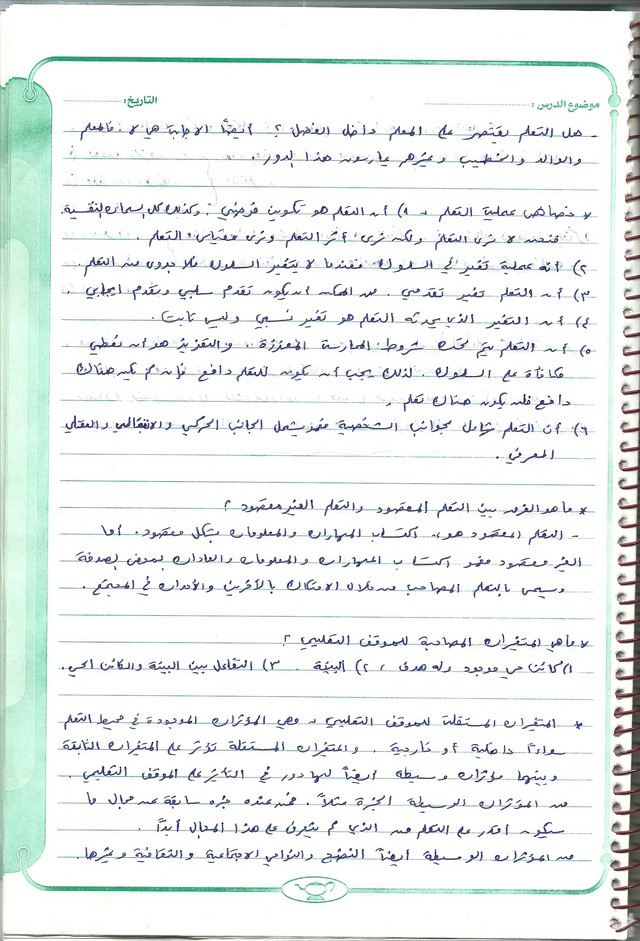 موضوع الدرس: التاريخ:
- هل التعلم يقتصر على المعلم داخل الفصل؟ أيضاً الاجابة هي لا. فالمعلم
والوالد والخطيب وغيرهم يمارسون هذا الدور.
* خصائص عملية التعلم: ١) أن التعلم هو تكوين فرضي. وكذلك كل السمات النفسية.
فنحن لا نرى التعلم ولكن نرى أثر التعلم ونرى مقياس التعلم.
٢) أنه عملية تغير في السلوك فعندما لا يتغير السلوك فلا جدوى من التعلم.
٣) أن التعلم تغير تقدمي. من الممكن أن يكون تقدم سلبي وتقدم ايجابي.
٤) أن التغير الذي يحدثه التعلم هو تغير نسبي وليس ثابت.
٥) أن التعلم يتم تحت شروط الممارسة المعززة. والتعزيز هو أن نعطي
مكافأة على السلوك. لذلك يجب أن يكون للتعلم دافع فإن لم يكن هناك
دافع فلن يكون هناك تعلم.
٦) أن التعلم شامل لجوانب الشخصية فهو يشمل الجانب الحركي والانفعالي والعقلي
المعرفي.
* ما هو الفرق بين التعلم المقصود والتعلم الغير مقصود؟
- التعلم المقصود هو: اكتساب المهارات والمعلومات بشكل مقصود. أما
الغير مقصود فهو اكتساب المهارات والمعلومات والعادات بمحض الصدفة
ويسمى بالتعلم المصاحب من خلال الاحتكاك بالآخرين والأحداث في المجتمع.
* ما هي المتغيرات المصاحبة للموقف التعليمي؟
١) كائن حي موجود وله هدف، ٢) البيئة. ٣) التفاعل بين البيئة والكائن الحي.
* المتغيرات المستقلة للموقف التعليمي: وهي المؤثرات الموجودة في محيط التعلم
سواءاً داخلية أو خارجية. والمتغيرات المستقلة تؤثر على المتغيرات التابعة
وبينهما مؤثرات وسيطة أيضاً لها دور في التأثير على الموقف التعليمي.
من المؤثرات الوسيطة الخبرة مثلاً. فمن عنده خبره سابقة عن مجال ما
سيكون أقدر على التعلم من الذي لم يتعرف على هذا المجال أبداً.
من المؤثرات الوسيطة أيضاً النضج والنواحي الاجتماعية والثقافية وغيرها.